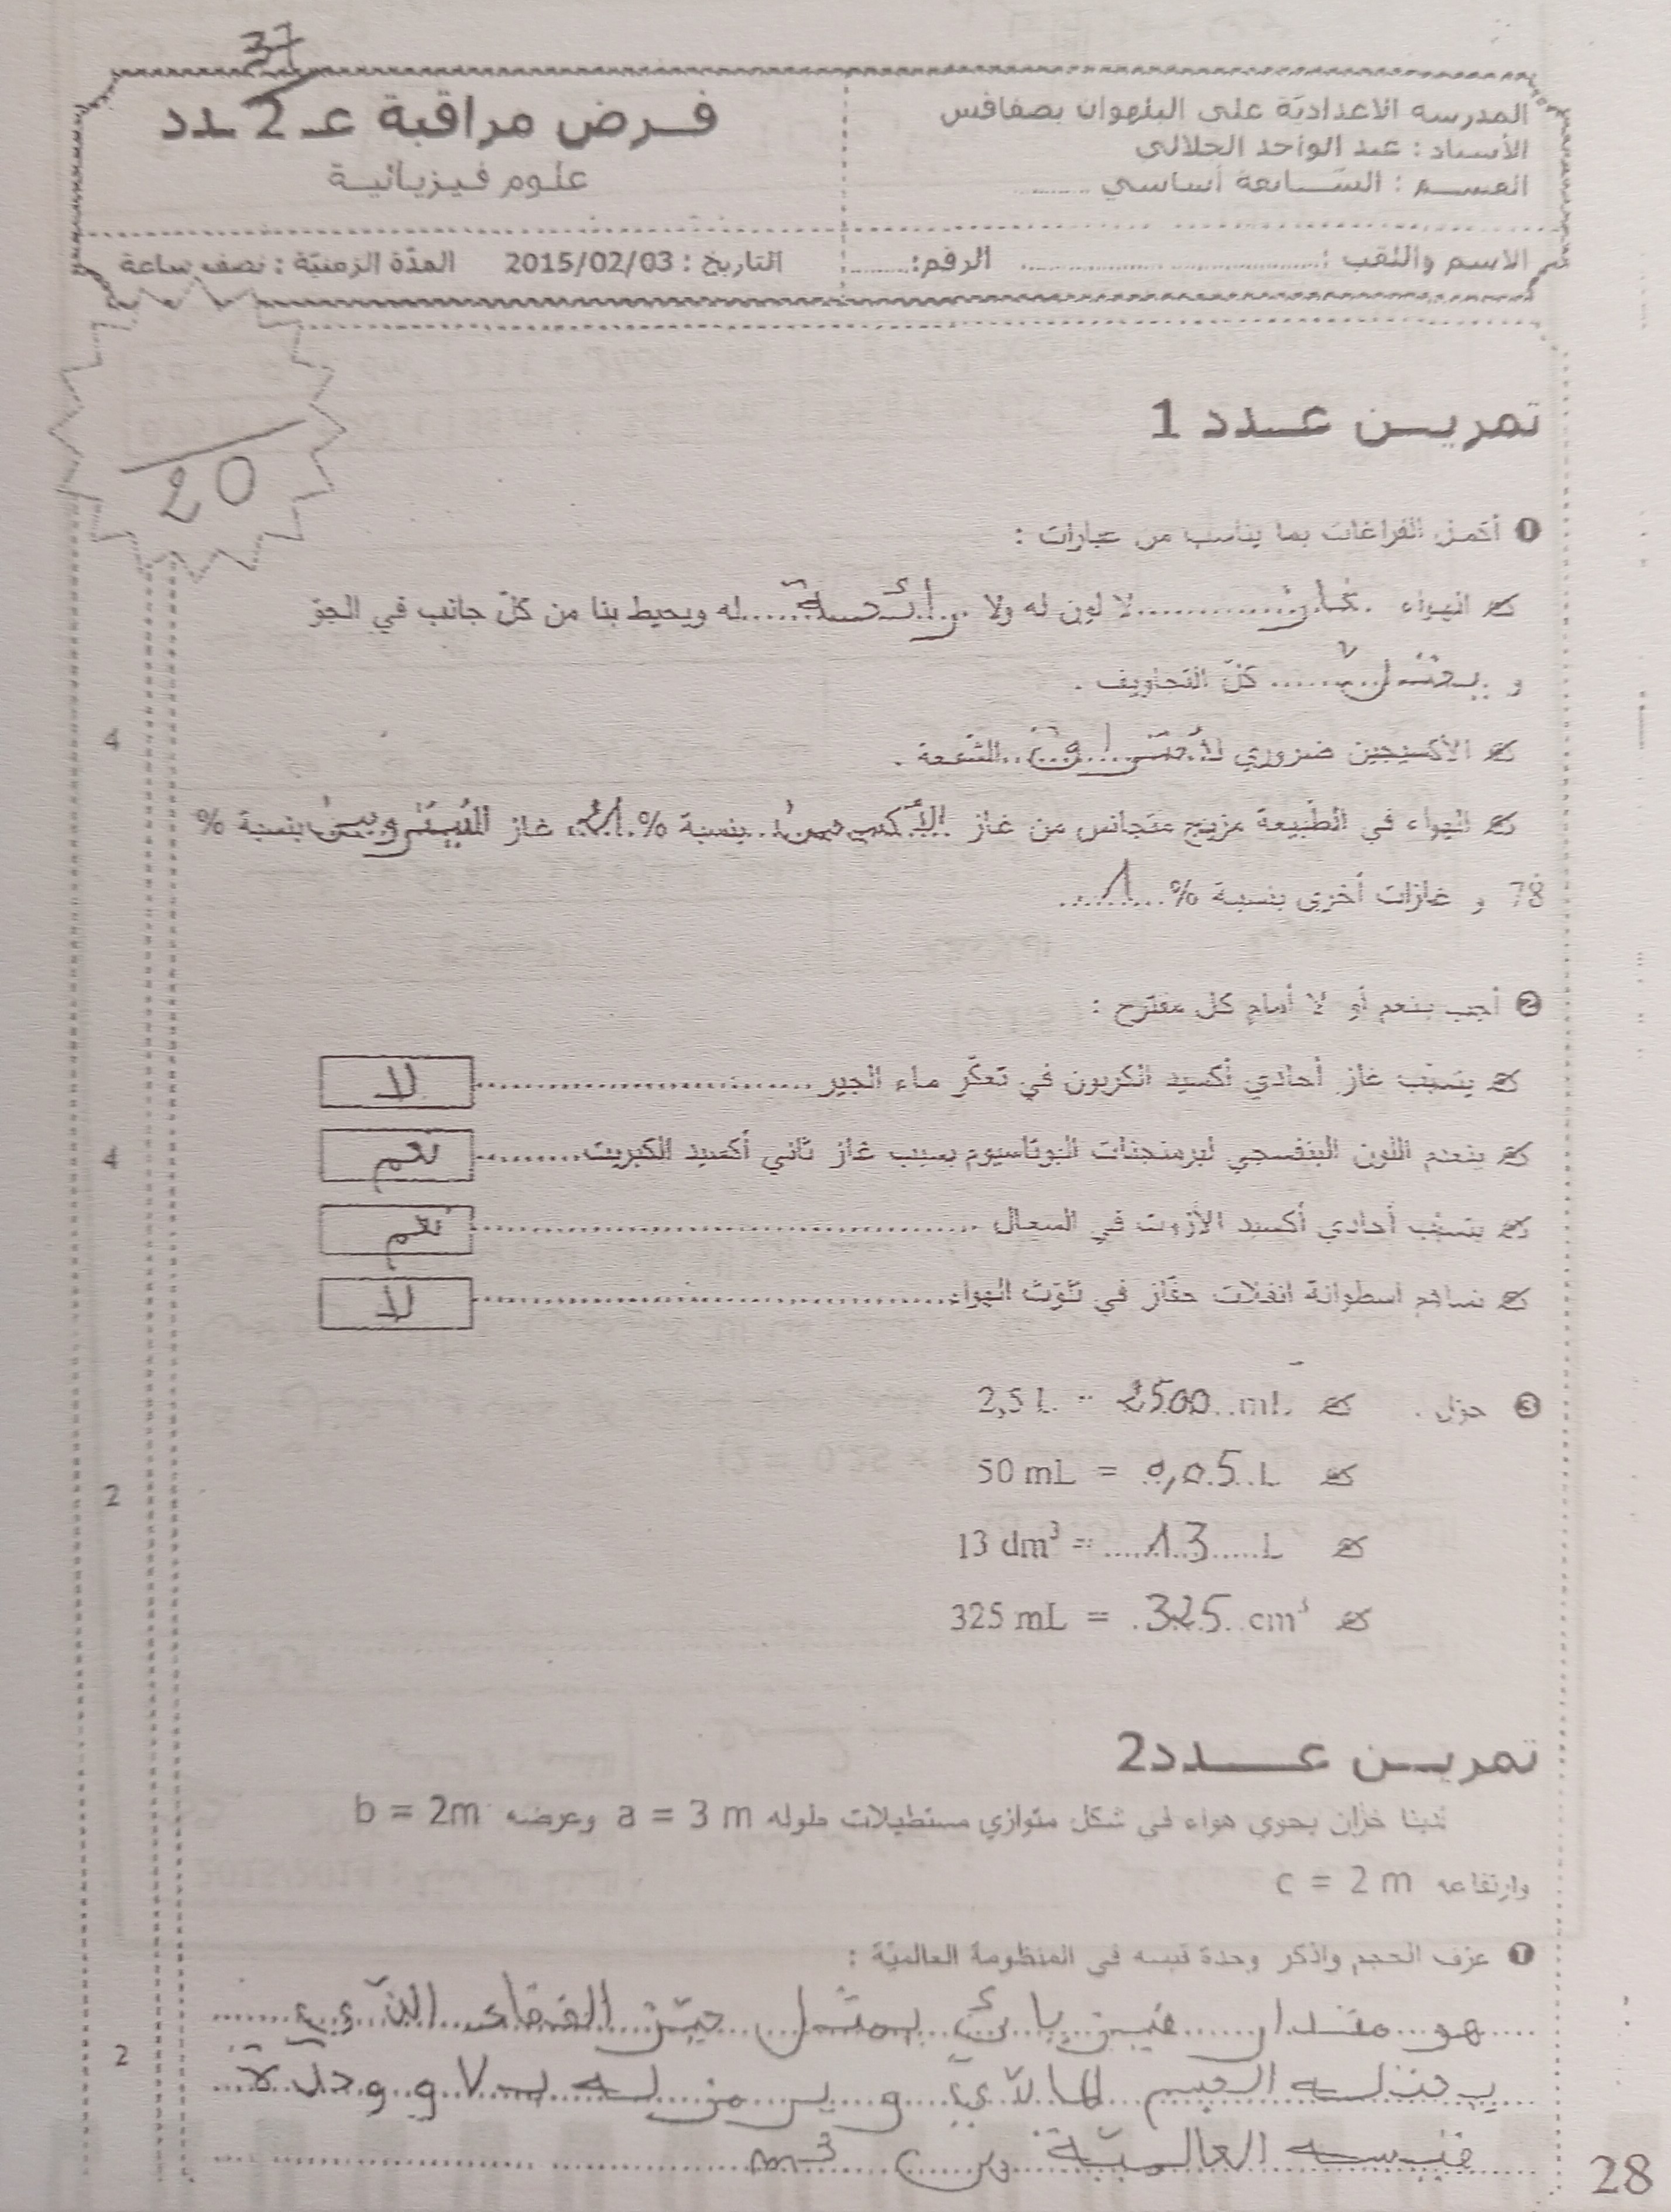 37
المدرسة الاعداديّة على البلهوان بصفاقس
الأستاذ : عبد الواحد الجلالي
القسم : السّابعة أساسي ........
فرض مراقبة عـ2ـدد
علوم فيزيائية
الاسم واللقب : ........................ الرقم: ........
التاريخ : 2015/02/03 المدّة الزمنيّة : نصف ساعة
20
تمرين عدد 1
❶ أكمل الفراغات بما يناسب من عبارات :
الهواء غاز لا لون له ولا رائحة له ويحيط بنا من كلّ جانب في الجوّ
و يحتلّ كلّ التجاويف .
الأكسيجين ضروري لاحتراق الشّمعة .
4
الهواء في الطّبيعة مزيج متجانس من غاز الأكسيجين بنسبة % 21 غاز النيتروجين بنسبة %
78 و غازات أخرى بنسبة % 1
❷ أجب بنعم أو لا أمام كل مقترح :
يتسبّب غاز أحادي أكسيد الكربون في تعكّر ماء الجير لا
ينعدم اللون البنفسجي لبرمنجنات البوتاسيوم بسبب غاز ثاني أكسيد الكبريت نعم
4
يتسبّب أحادي أكسيد الأزوت في السعال نعم
تساهم اسطوانة انفلات حفّاز في تلوّث الهواء لا
❸ حوّل . 2,5 L = 2500 mL
50 mL = 0,05 L
2
13 dm³ = 13 L
325 mL = 325 cm³
تمرين عدد2
لدينا خزّان يحوي هواء في شكل متوازي مستطيلات طوله a = 3 m وعرضه b = 2m
وارتفاعه c = 2 m
❶ عرّف الحجم واذكر وحدة قيسه في المنظومة العالميّة :
هو مقدار فيزيائيّ يمثل حيّز الفضاء الذّي
2
يحتله الجسم المادّيّ و يرمز له بـ V و وحدة
قيسه العالميّة هي m³
28